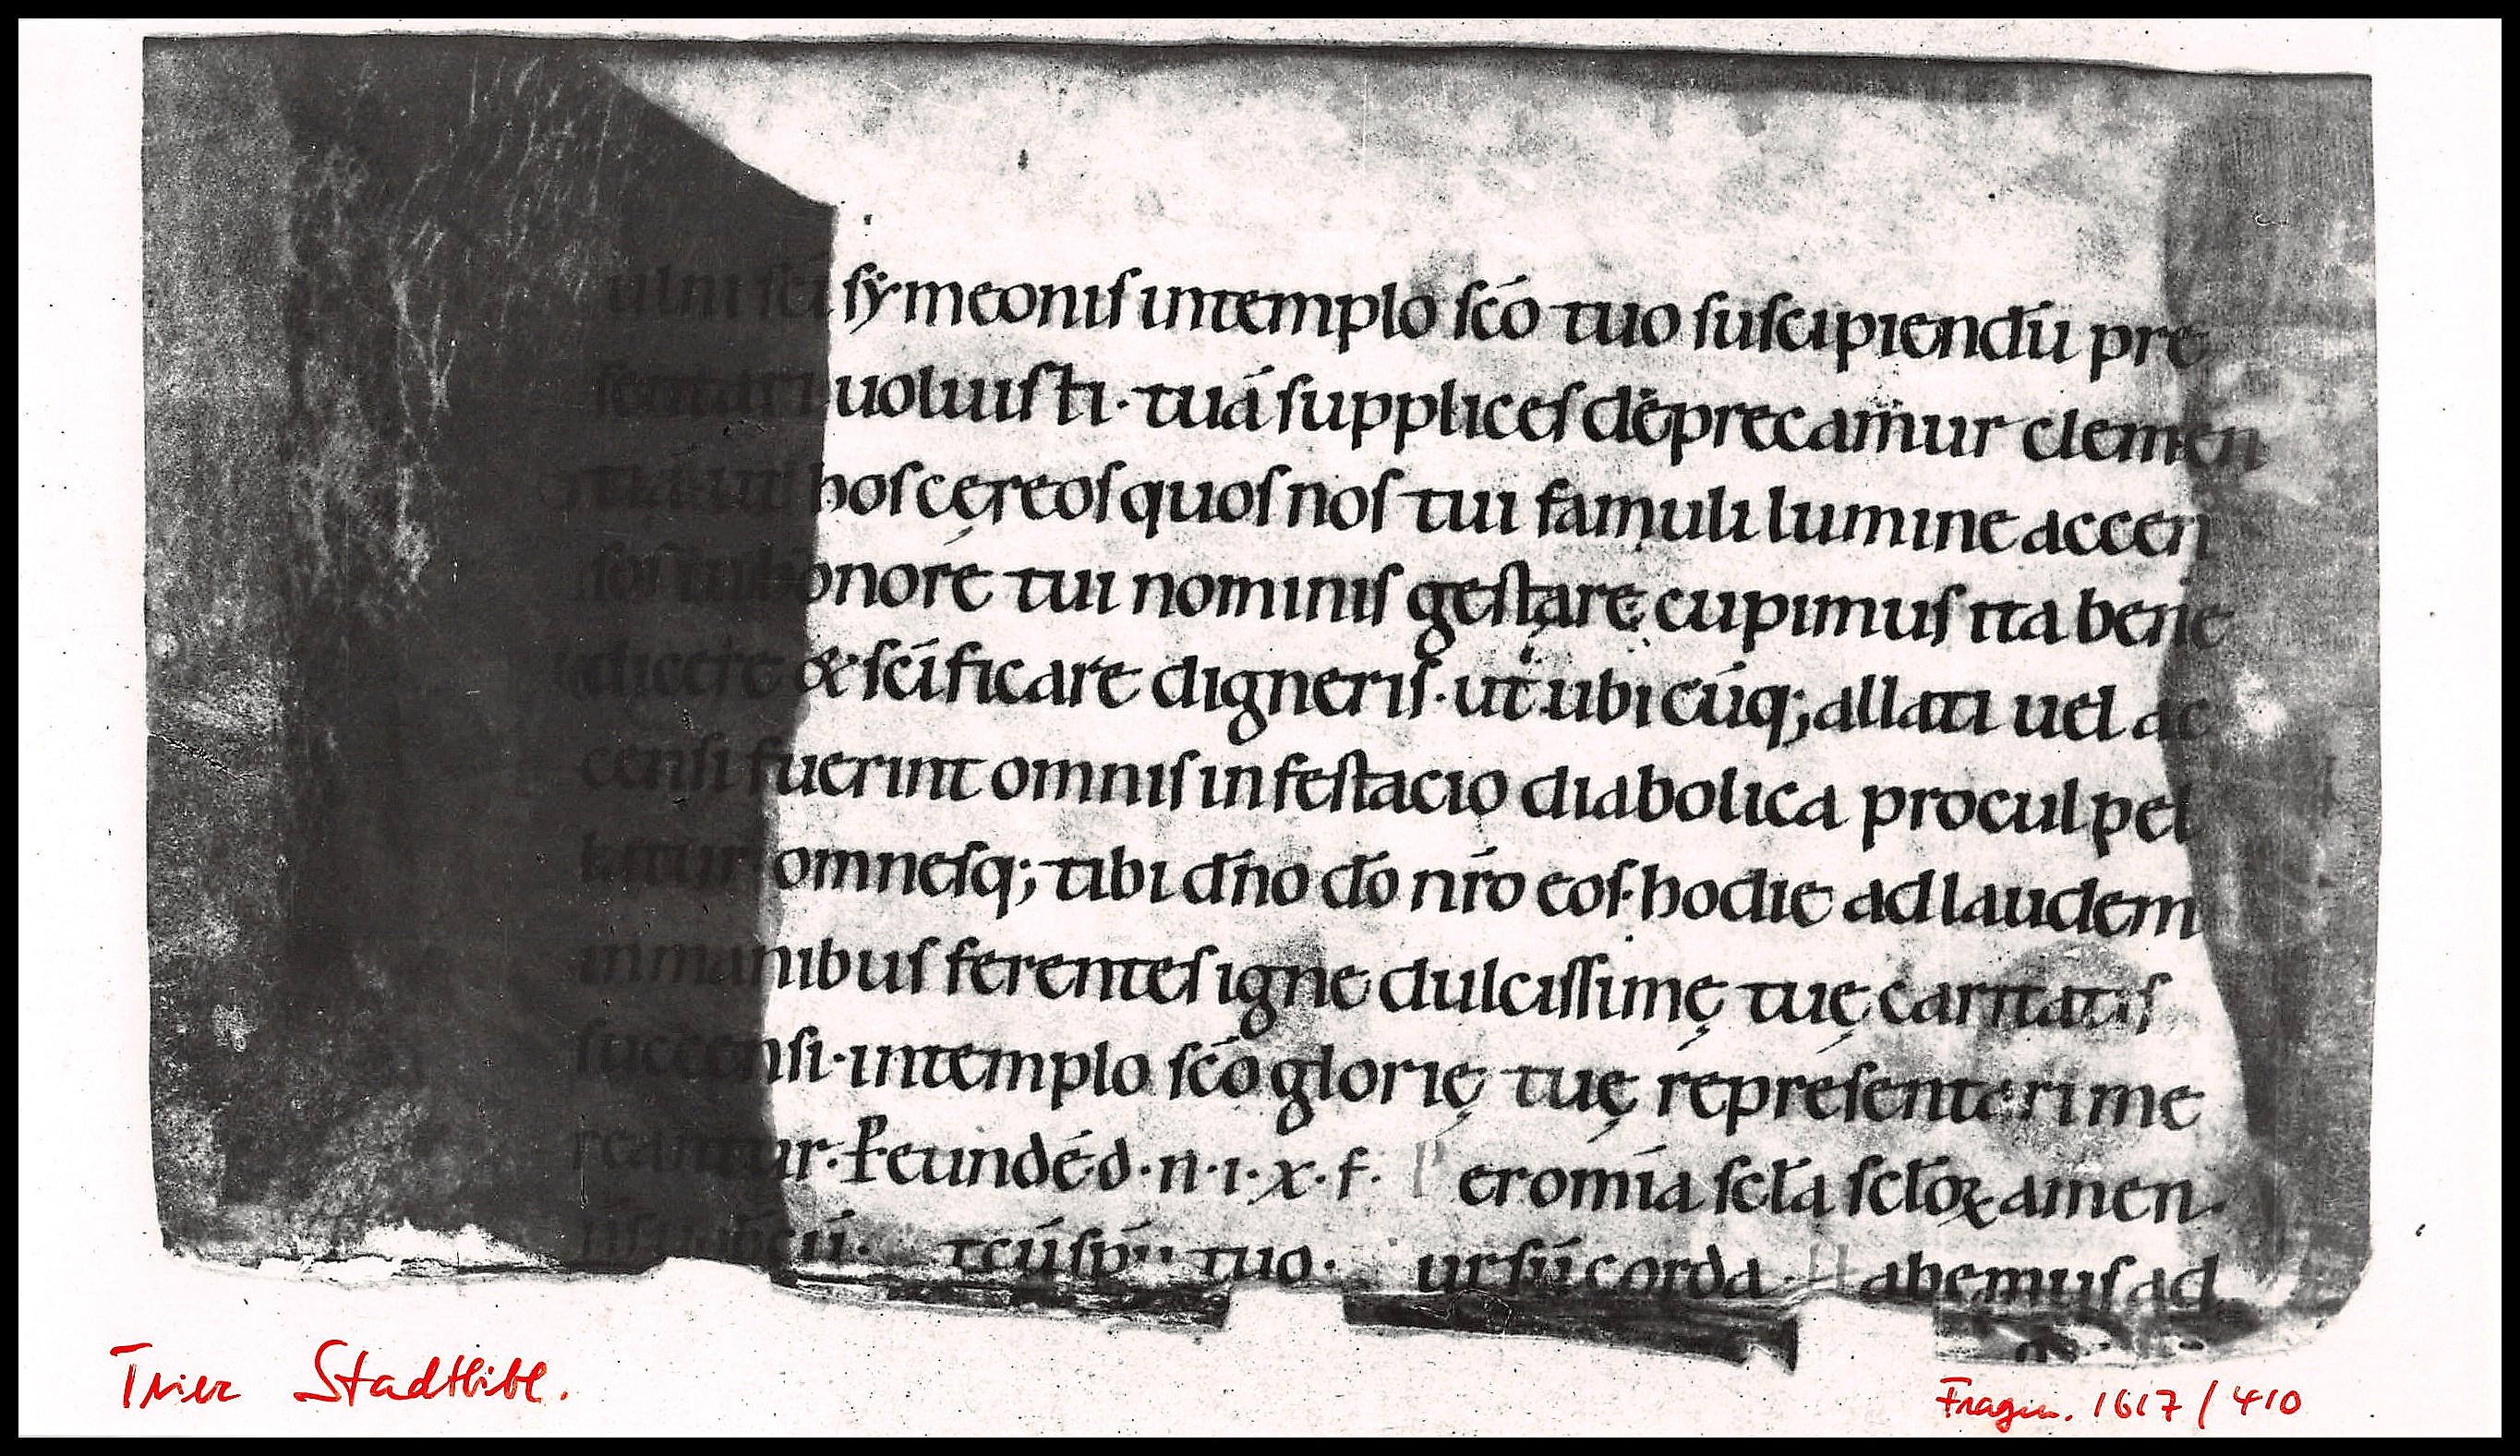 ulni sc̄i sẏmeonis intemplo sc̄o tuo suscipiendū pre
sentari uoluisti· tuā supplices deprecamur clemen
tiā· uti hos cęreos quos nos tui famuli lumine accen
sos inhonore tui nominis gestare cupimus ita bene
dicere & sc̄ificare digneris· ut ubicūq; allati uel ac
censi fuerint omnis infestacio diabolica procul pel
latur omnesq; tibi dn̄o dō nr̄o eos hodie adlaudem
inmanibus ferentes igne dulcissimę tuę caritatis
succensi· intemplo sc̄o glorię tuę representari me
reamur· P eunde d· n· i· x· f· P eromīa sc̄la sc̄loꝝ amen·
cū· tcū sp̄u tuo· ursū corda· H abemus ad
Trier Stadtbibl.
Fragm. 1617/410